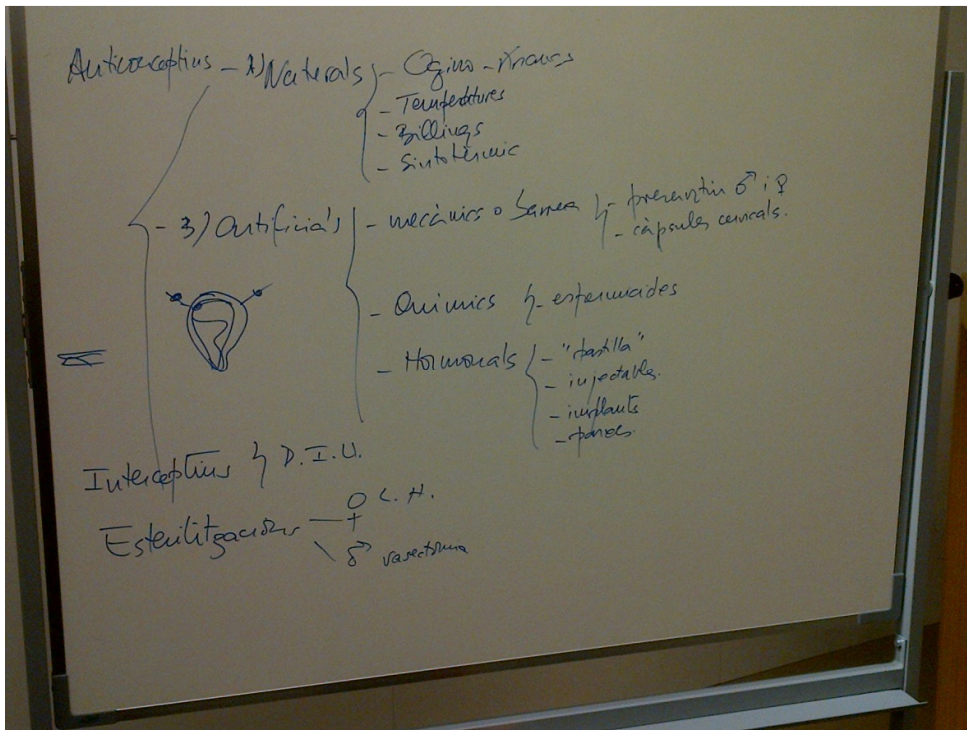 Anticonceptius - A) Naturals - Ogino - Knaus
- Temperatures
- Billings
- Sintotèrmic
- B) Artificials - mecànics o barrera - preservatiu ♂ i ♀
- càpsules cervicals.
- Químics - espermicides
- Hormonals - "pastilla"
- injectables.
- implants
Interceptius D.I.U.
Esterilitzacions ♀ L.H.
♂ vasectomia